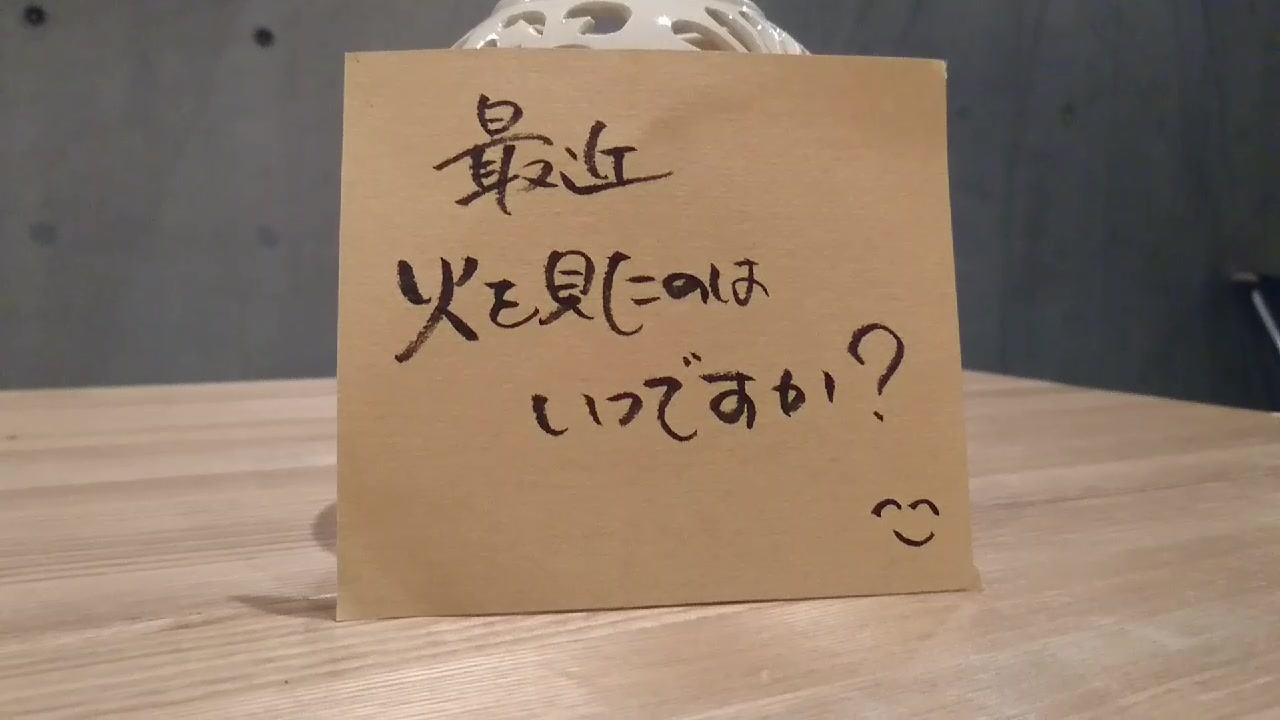 最近
火を見たのは
いつですか?